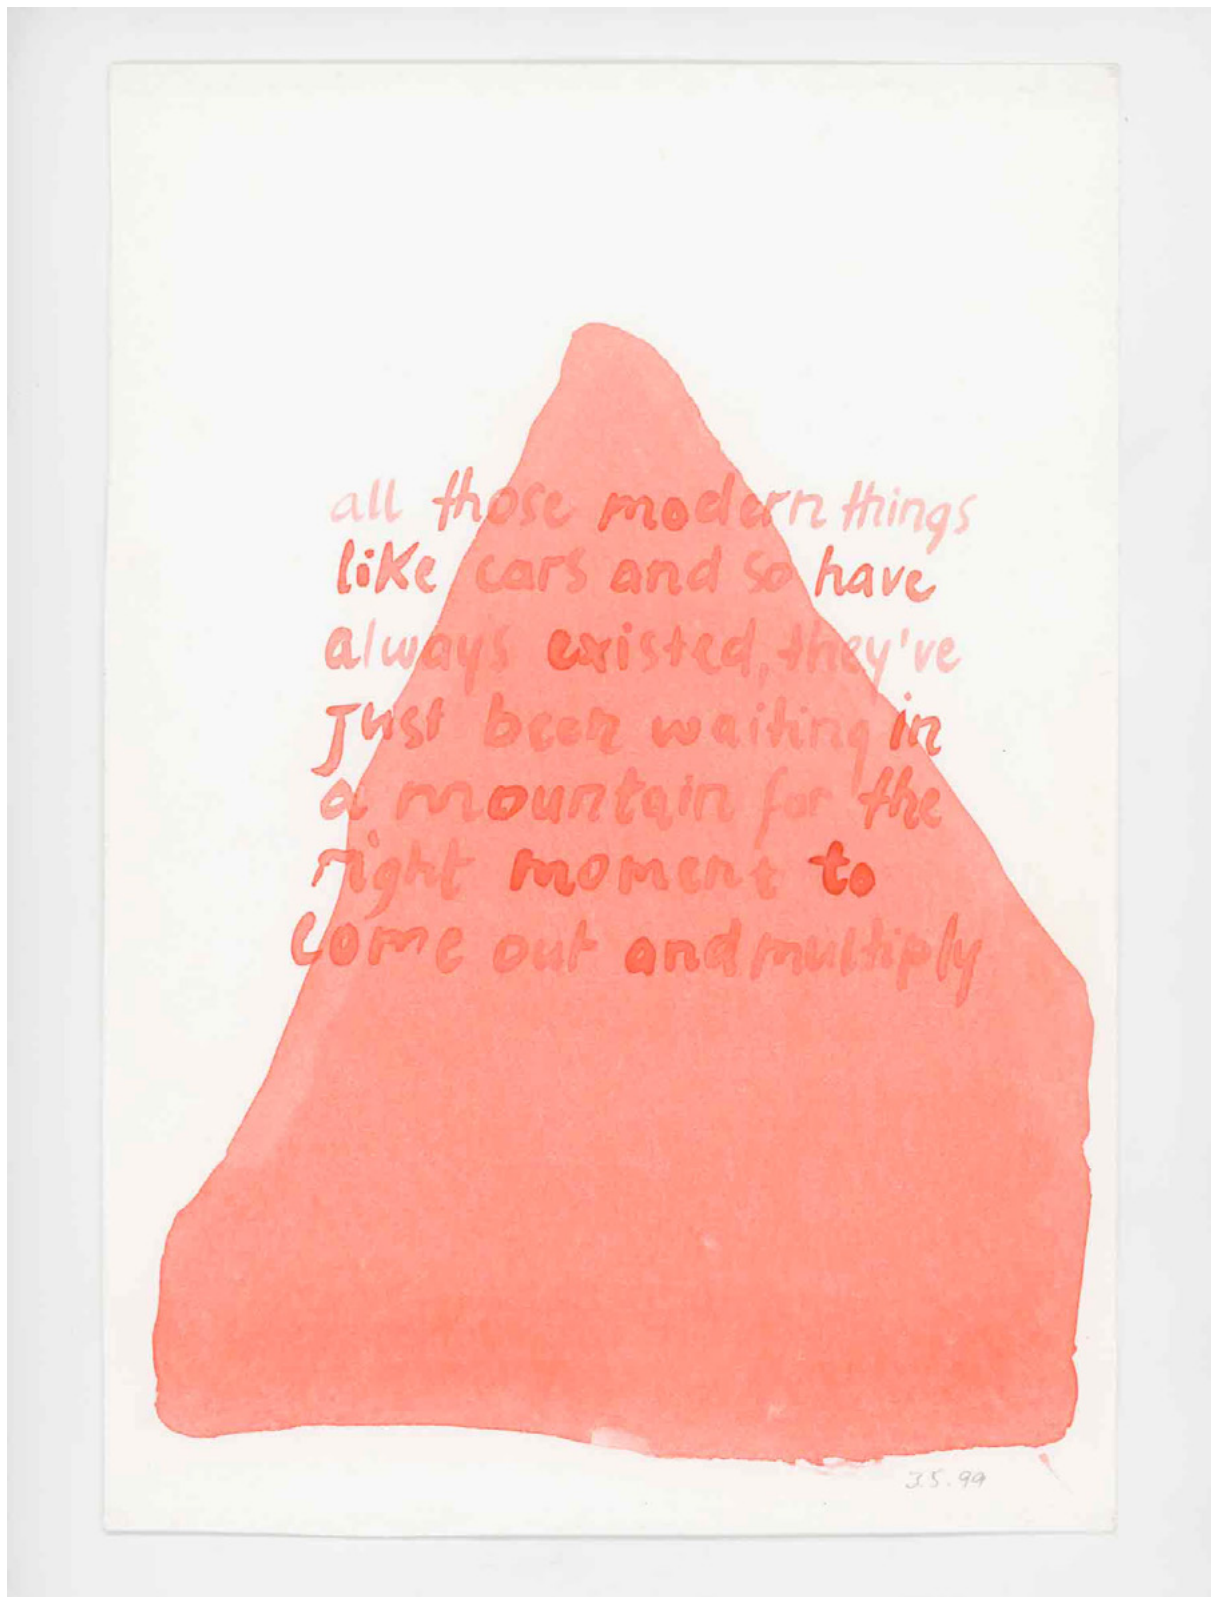 all those modern things
like cars and so have
always existed, they've
just been waiting in
a mountain for the
right moment to
come out and multiply
3.5.99